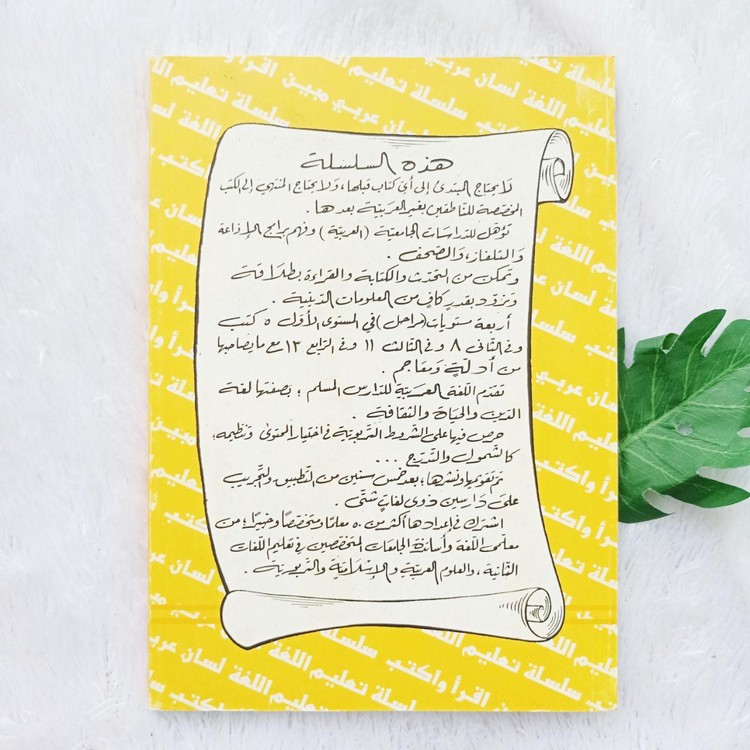 هذه السلسلة
لا يحتاج المبتدئ إلى أي كتاب قبلها، ولا يحتاج المنتهي إلى الكتب
المخصصة للناطقين بغير العربية بعدها.
تؤهل للدراسات الجامعية (العربية) وفهم برامج الإذاعة
والتلفاز، والصحف.
وتمكن من التحدث والكتابة والقراءة بطلاقة
وتزود بقدر كاف من المعلومات الدينية.
أربعة مستويات (مراحل) في المستوى الأول ٥ كتب
وفي الثاني ٨ وفي الثالث ١١ وفي الرابع ١٣ مع ما يصاحبها
من أدلة ومعاجم.
تقدم اللغة العربية للدارس المسلم؛ بصفتها لغة
الدين والحياة والثقافة.
حرص فيها على الشروط التربوية في اختيار المحتوى وتنظيمه؛
كالشمول والتدرج ...
تم تقويمها ونشرها؛ بعد خمس سنين من التطبيق والتجريب
على دارسين ذوي لغات شتى.
اشترك في إعدادها أكثر من ٥٠ معلما ومتخصصا وخبيرا؛ من
معلمي اللغة وأساتذة الجامعات المتخصصين في تعليم اللغات
الثانية، والعلوم العربية والإسلامية والتربوية.
سلسلة تعليم اللغة لسان عربي مبين اقرأ واكتب